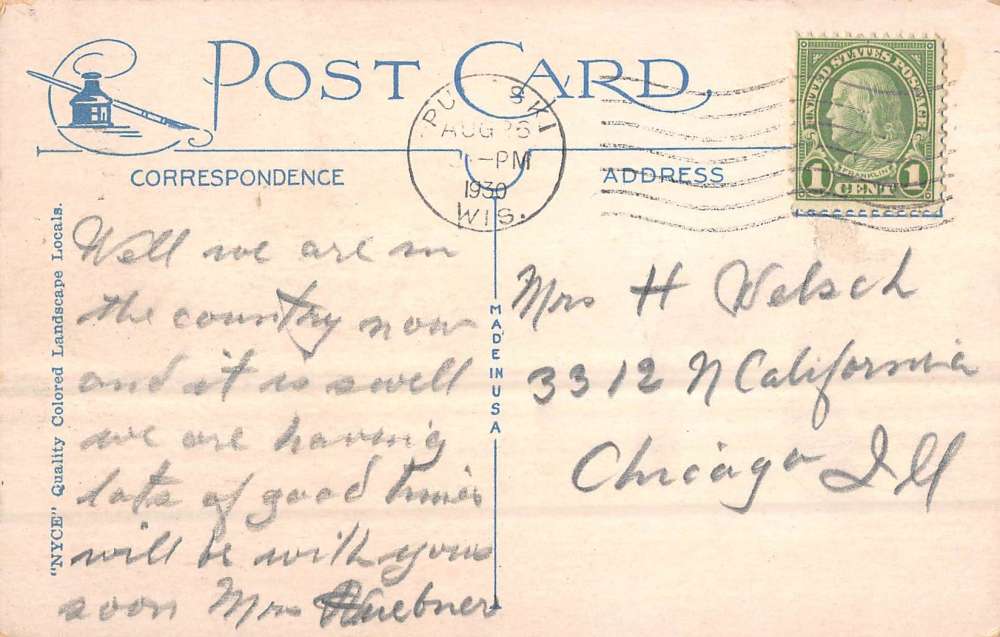 POST CARD
PULASKI
AUG 26
-PM
1930
WIS.
UNITED STATES POSTAGE
FRANKLIN
1 CENT 1
CORRESPONDENCE
ADDRESS
"NYCE" Quality Colored Landscape Locals.
MADE IN USA
Well we are in
the country now
and it is swell
we are having
lots of good times
will be with yous
soon Mrs Huebner
Mrs H Welsch
3312 N California
Chicago Ill